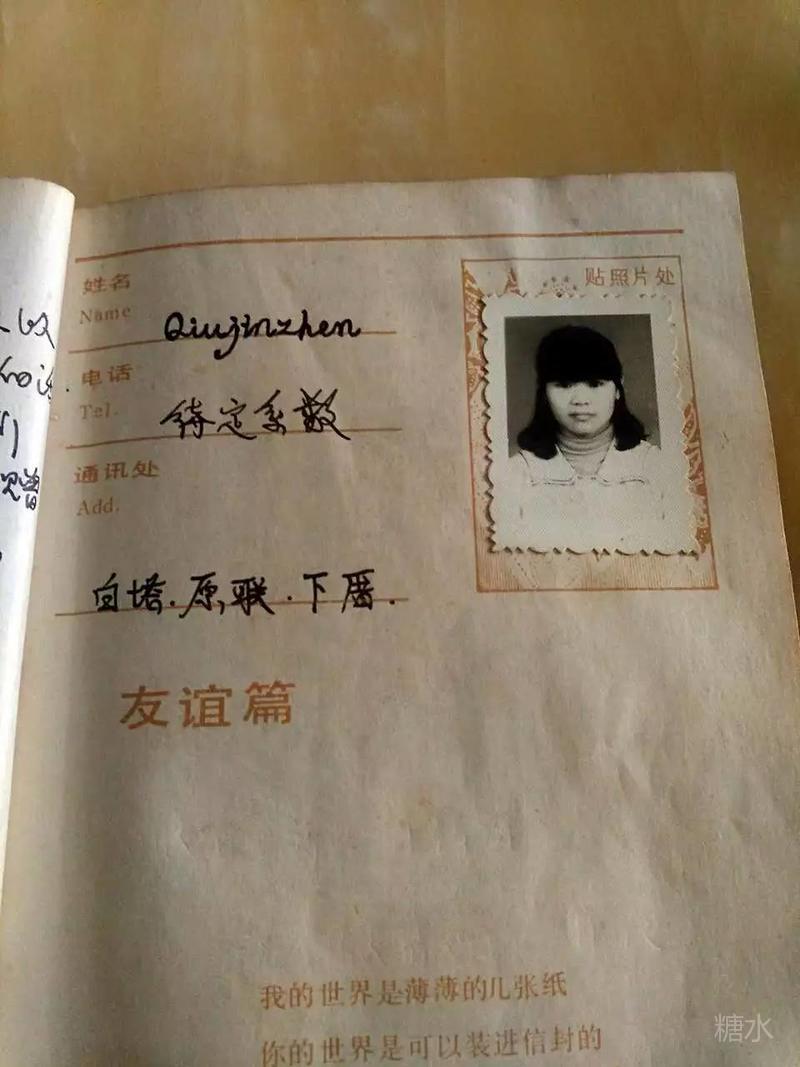 姓名
Name
Qiujinzhen
贴照片处
电话
Tel.
待定系数
通讯处
Add.
白塔.原联.下厝.
友谊篇
我的世界是薄薄的几张纸
你的世界是可以装进信封的
糖水